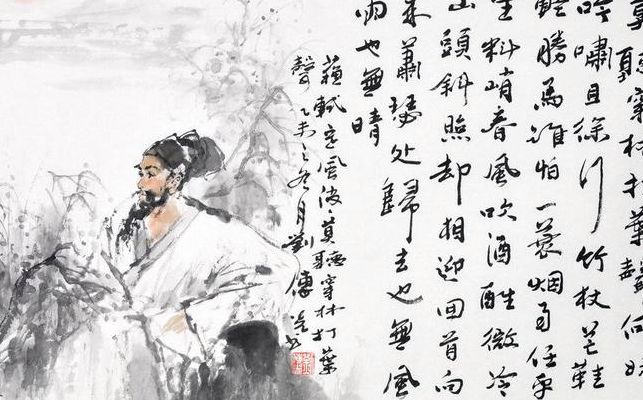 穿林打葉聲何妨
吟嘯且徐行竹杖芒鞋
輕勝馬誰怕一蓑烟雨任平
生料峭春風吹酒醒微冷
山頭斜照却相迎回首向
來蕭瑟处歸去也無風
雨也無晴
蘇軾定風波莫聽穿林打葉
聲乙未之冬月劉傳